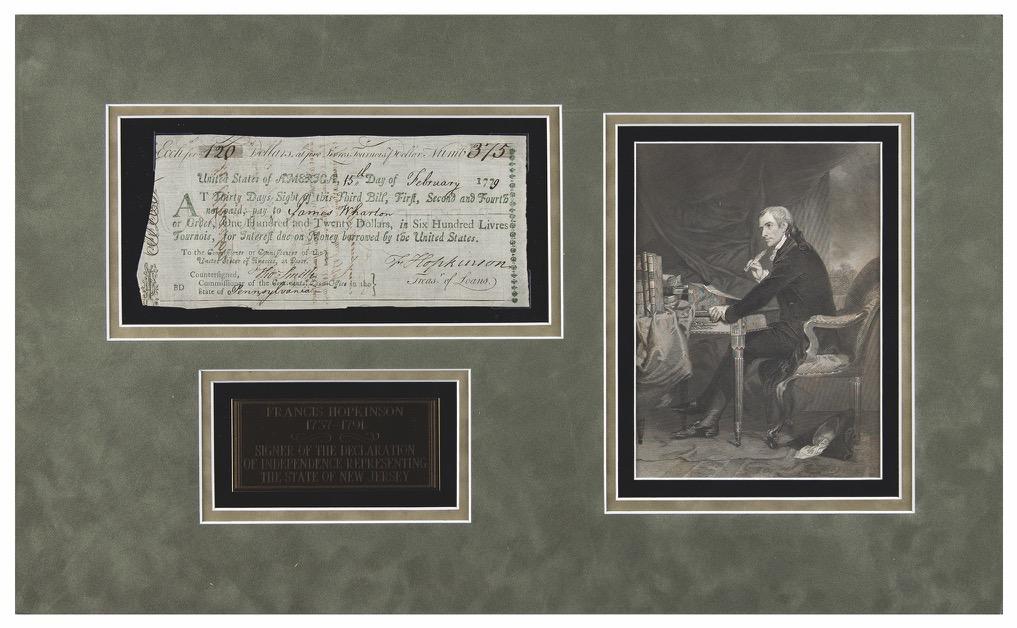 Exch: for 120 Dollars, at five Livres Tournois pr Dollar. Numb. 375
United States of AMERICA, 15th Day of February 1779
AT Thirty Days Sight of this Third Bill, First, Second and Fourth
not paid, pay to James Wharton
or Order, One Hundred and Twenty Dollars, in Six Hundred Livres
Tournois, for Interest due on Money borrowed by the United States.
To the Commissioner or Commissioners of the
United States of America, at Paris.
F. Hopkinson
Treasr. of Loans.
Countersigned, Tho. Smith
Commissioner of the Continental Loan-Office in the
State of Pennsylvania
BD
FRANCIS HOPKINSON
1737-1791
SIGNER OF THE DECLARATION
OF INDEPENDENCE REPRESENTING
THE STATE OF NEW JERSEY